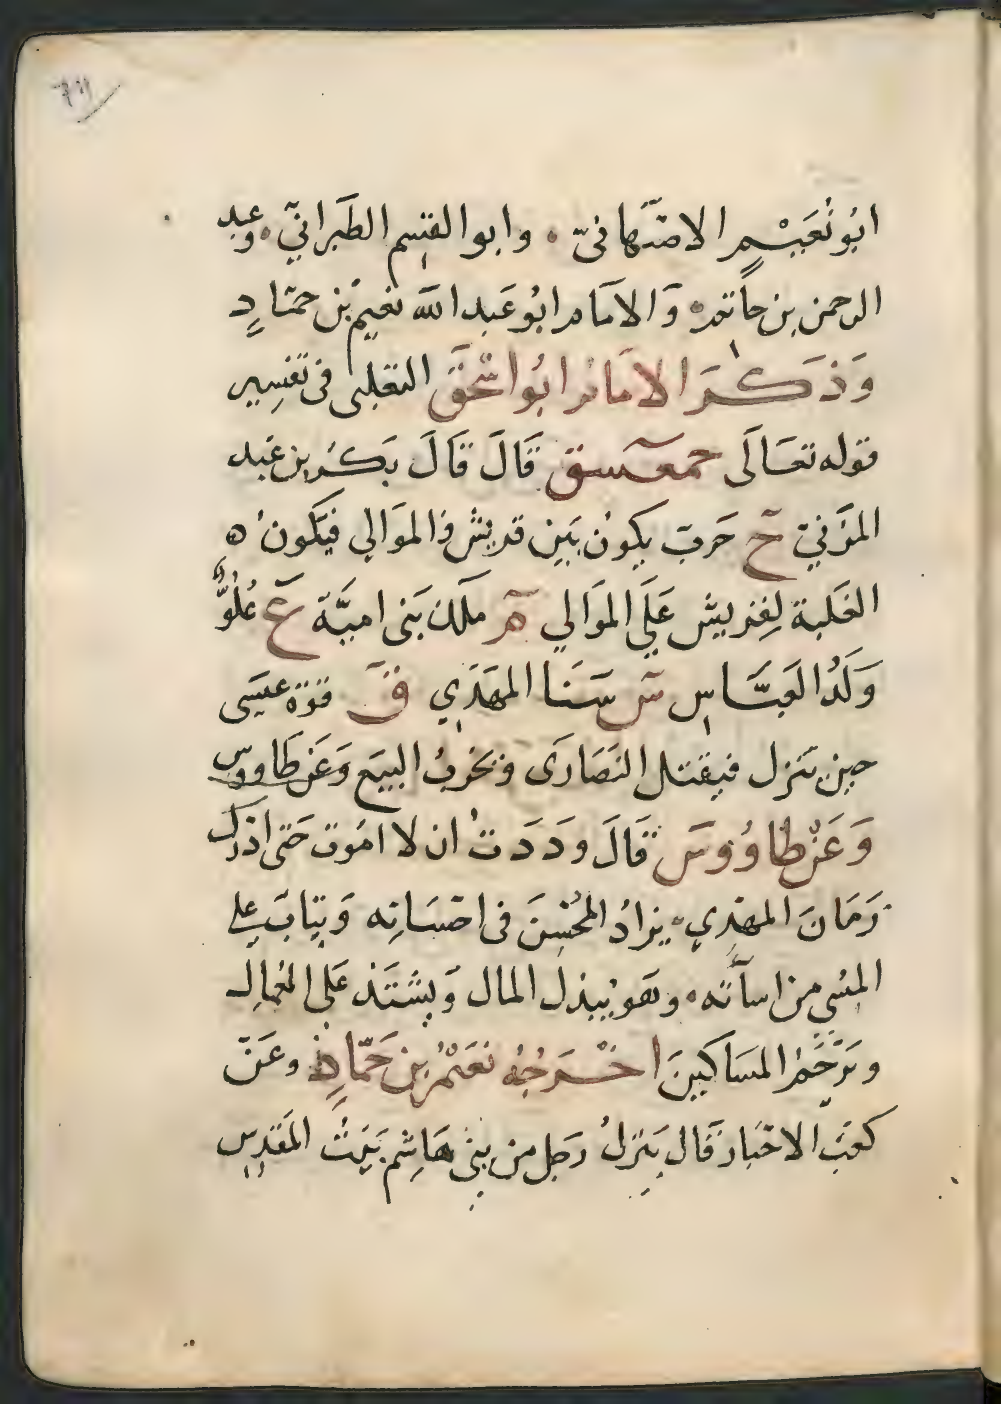 ابُو نُعَيْمٍ الاصْبَهانىّ ۰ وابو القسم الطَبَرانيّ ۰ وعبد
الرحمن بن حاتم ۰ وَالامَام ابُو عَبد الله نعيم بْن حمّادٍ
وَذَكَرَ الامَام ابُو اسْحٰقَ الثعلبى فى تفسِير
قوله تعَالَى حمعسق قَالَ قَالَ بَكر بن عَبد
المُزَنيّ ح حَربٌ يكونُ بَين قريش والموَالي فيَكون
الغَلبة لِقريش عَلَى الموَالي م ملك بَنى اميَّة ع عُلُوُّ
وَلَدُ العَبَّاس س سَنَا المهَدي ق قوّة عيسَى
حين ينزل فيقتل النصَارَى ويخربُ البيَع وَعَن طاووس
وَعَنْ طاوُوسَ قَالَ ودَدَتُ ان لا امُوت حَتى ادْرك
زمَانَ المهدِي ۰ يزادُ المحْسِنَ فى احسَانِه وَيتابَ على
المسِى من اساَتَه ۰ وهو يبذل المال وَيشتَد عَلى العُمالِ
وَيَرْحَمُ المسَاكينَ اخْرَجُهُ نعَيْمُ بن حَمّادٍ وعَن
كعَب الاحبَار قَال يَنزلُ رَجل من بنى هَاشِم بَيتُ المَقدِس